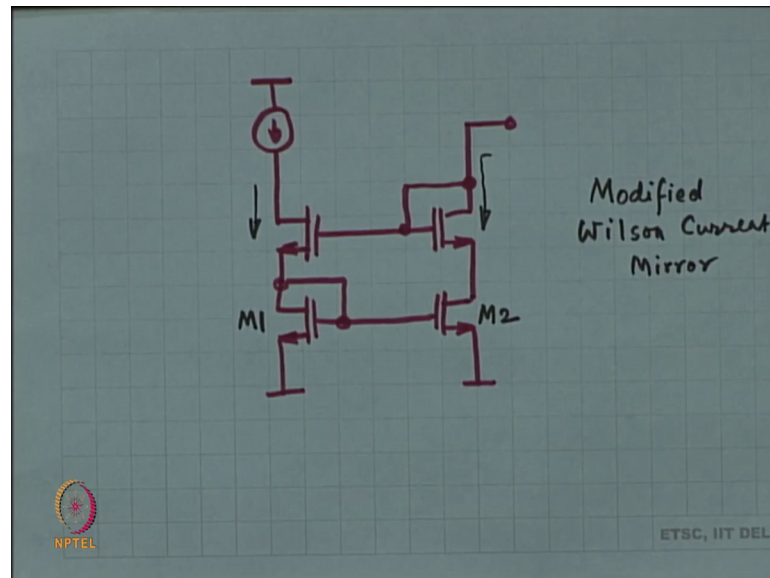 Modified
Wilson Current
Mirror
M1
M2
NPTEL
ETSC, IIT DEL